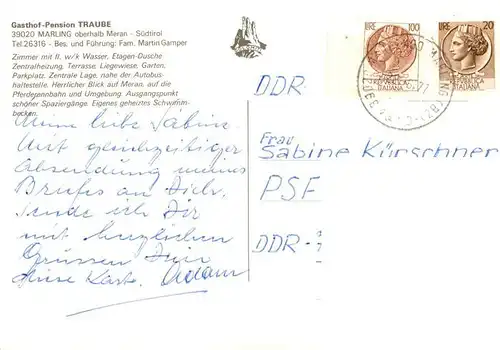 Gasthof-Pension TRAUBE
39020 MARLING oberhalb Meran - Südtirol
Tel. 26316 - Bes. und Führung: Fam. Martin Gamper
Zimmer mit fl. w/k Wasser, Etagen-Dusche
Zentralheizung, Terrasse, Liegewiese, Garten,
Parkplatz. Zentrale Lage, nahe der Autobus-
haltestelle. Herrlicher Blick auf Meran, auf die
Pferderennbahn und Umgebung. Ausgangspunkt
schöner Spaziergänge. Eigenes geheiztes Schwimm-
becken.
Meine liebe Sabine
Mit gleichzeitiger
Absendung meines
Briefes an Dich,
sende ich Dir
mit herzlichen
Grüssen
diese Karte.
LIRE 100
LIRE 20
ITALIANA
ITALIANA
DDR
Frau
Sabine Kürschner
PSF
DDR -